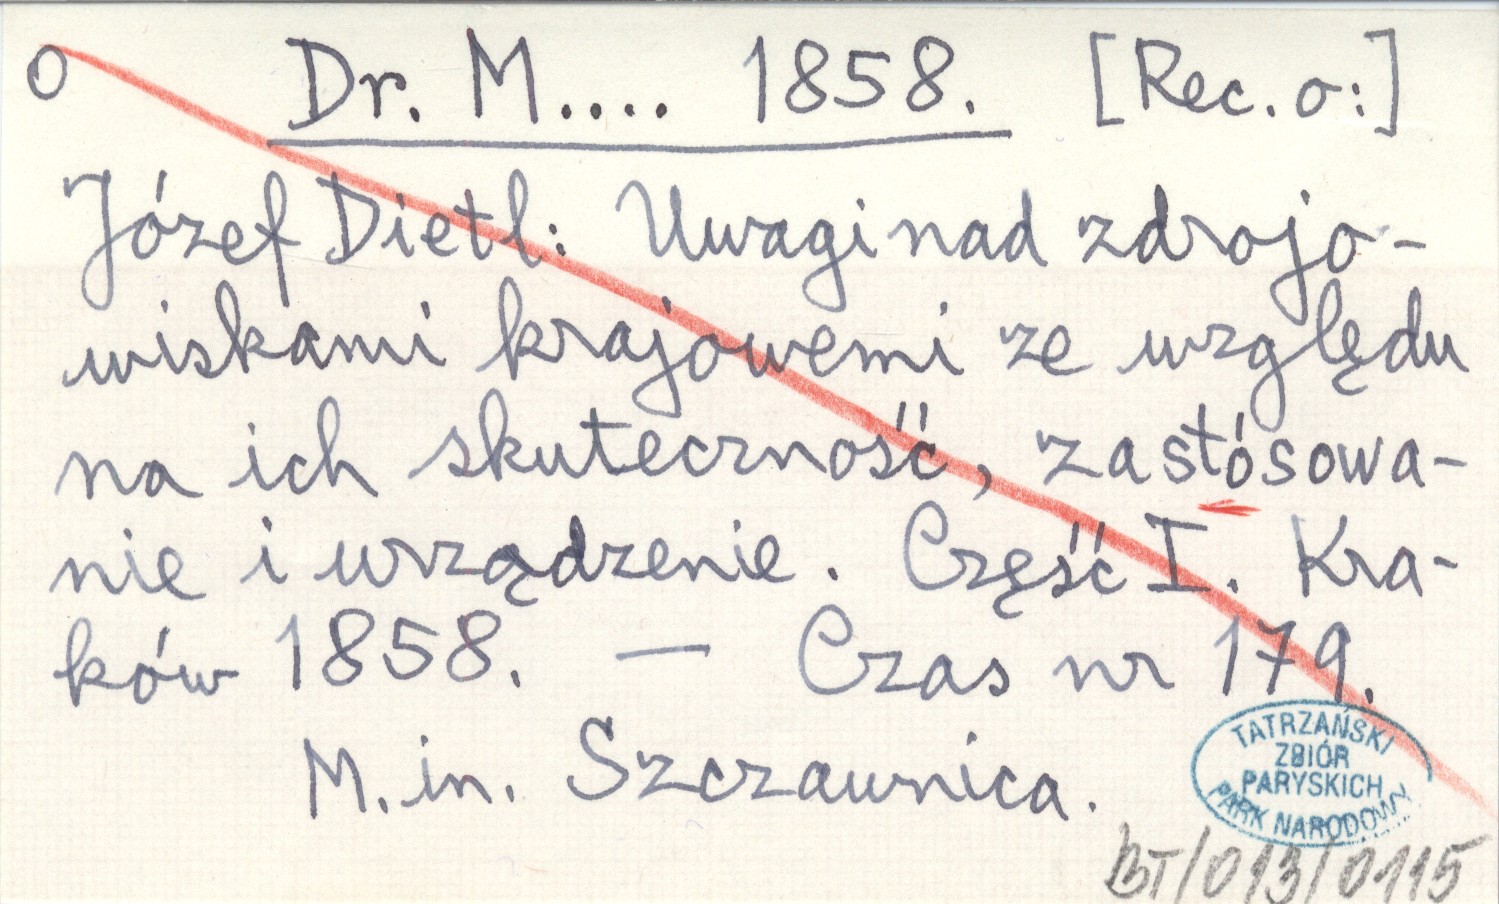 O Dr. M.... 1858. [Rec. o:]
Józef Dietl: Uwagi nad zdrojo-
wiskami krajowemi ze względu
na ich skuteczność, zastósowa-
nie i urządzenie. Część I. Kra-
ków 1858. — Czas nr 179.
M. in. Szczawnica.
TATRZAŃSKI
ZBIÓR
PARYSKICH
PARK NARODOWY
BT/013/0115